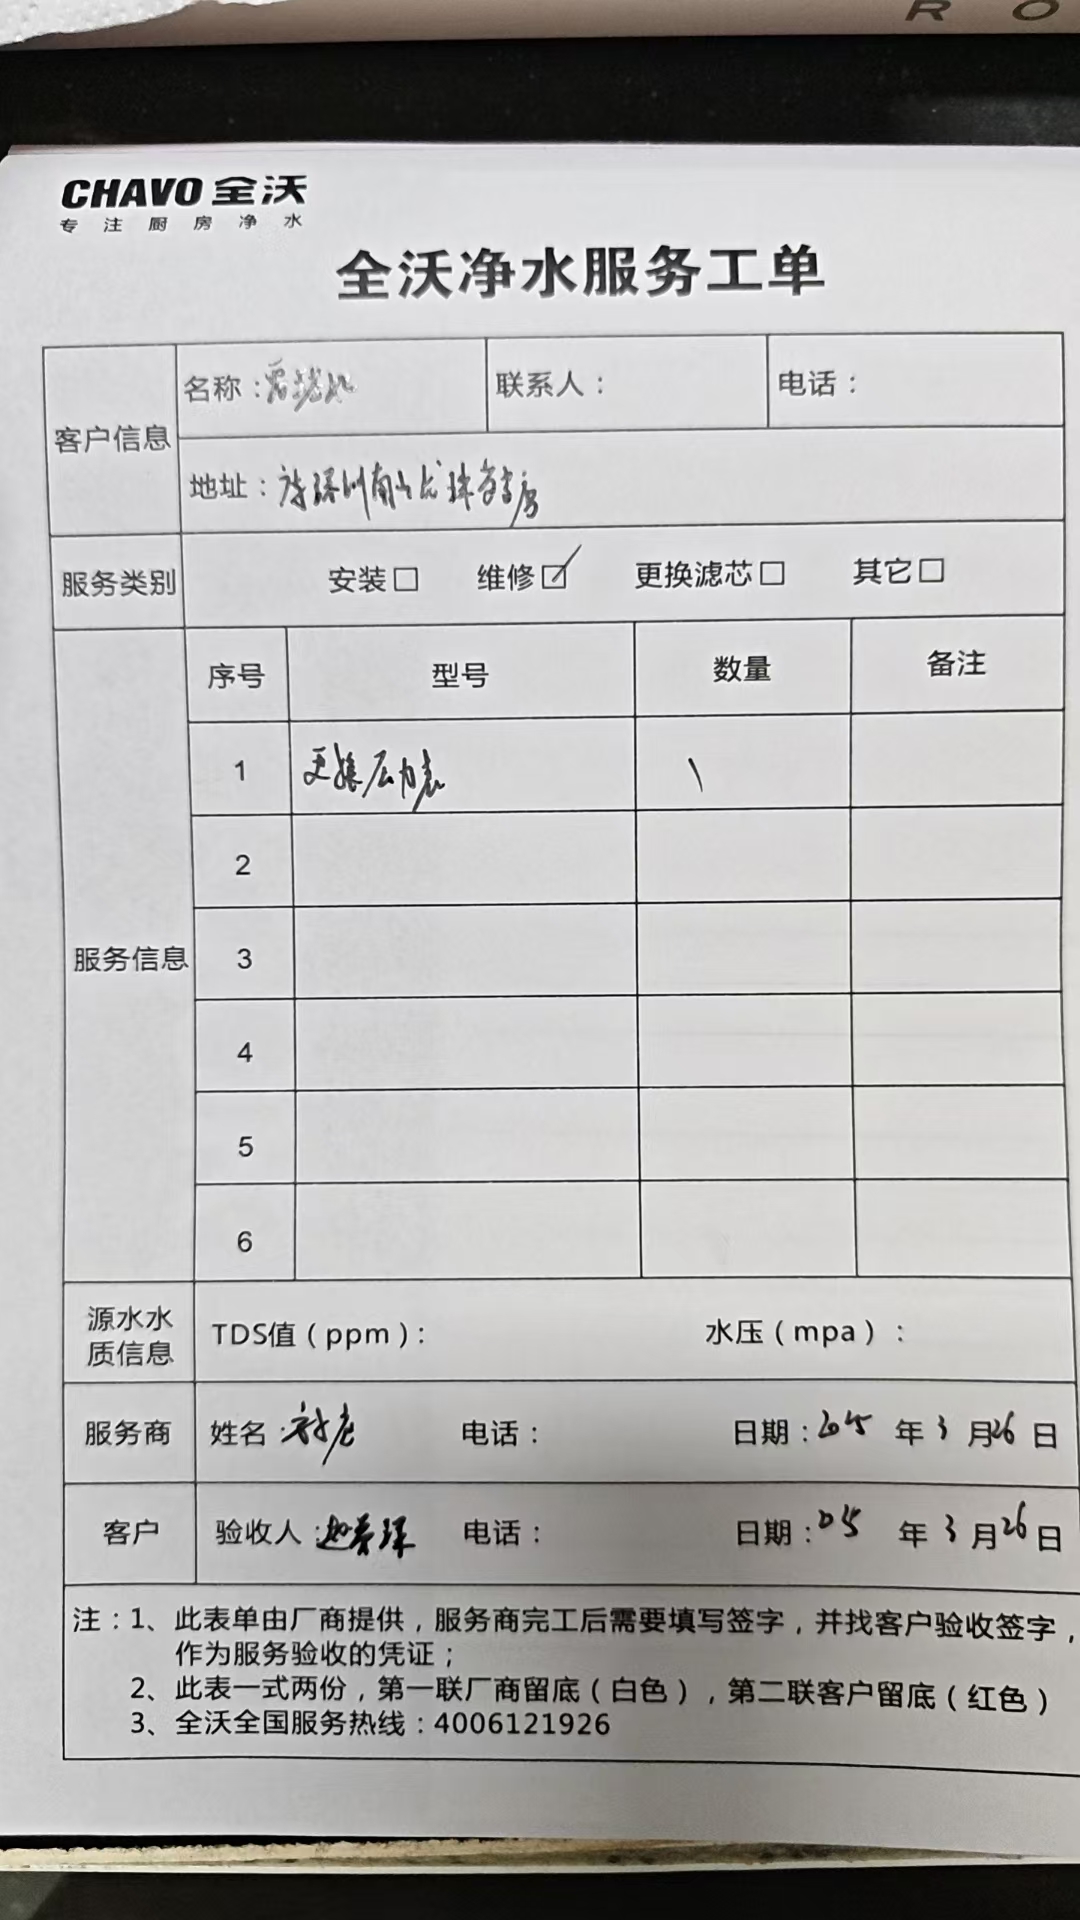 R O
CHAVO 全沃
专注厨房净水
全沃净水服务工单
客户信息
名称： 联系人： 电话：
地址：
服务类别 安装□ 维修☑ 更换滤芯□ 其它□
服务信息
序号 型号 数量 备注
1 更换压力表 1
2
3
4
5
6
源水水质信息 TDS值（ppm）： 水压（mpa）：
服务商 姓名： 电话： 日期：2025 年 3 月 26 日
客户 验收人： 电话： 日期：25 年 3 月 26 日
注：1、此表单由厂商提供，服务商完工后需要填写签字，并找客户验收签字，
作为服务验收的凭证；
2、此表一式两份，第一联厂商留底（白色），第二联客户留底（红色）
3、全沃全国服务热线：4006121926